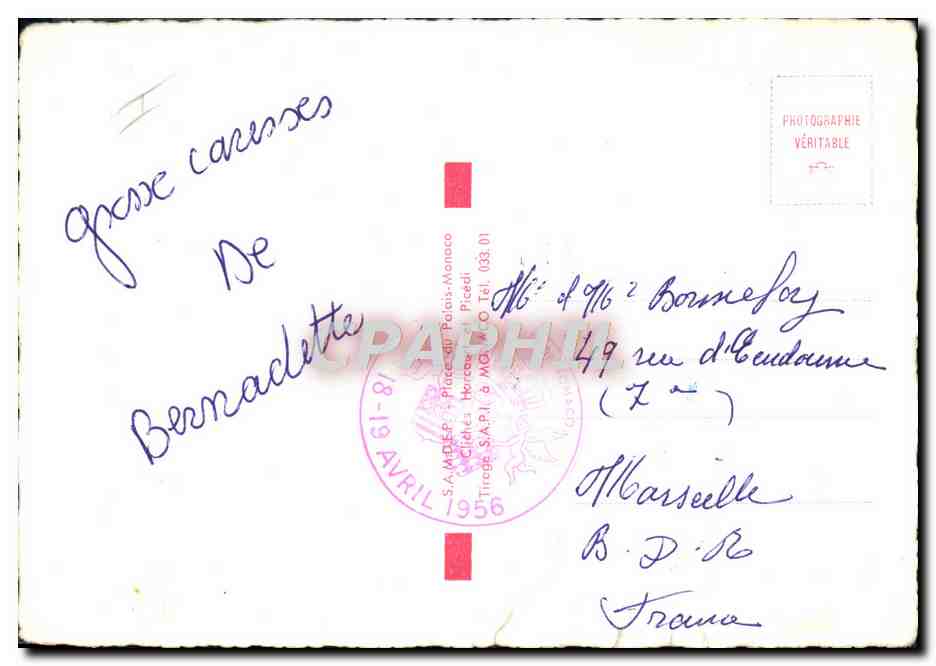 grosse caresses
De
Bernadette
PHOTOGRAPHIE
VÉRITABLE
S.A.M.D.E.P. - Place du Palais-Monaco
Clichés Harcourt et Picédi
Tirage S.A.P.I. à MONACO Tél. 033.01
CPAPHIL
18-19 AVRIL 1956
MONACO
Mr et Mme Bonnefoy
49 rue d'Endoume
(7e)
Marseille
B.D.R
France